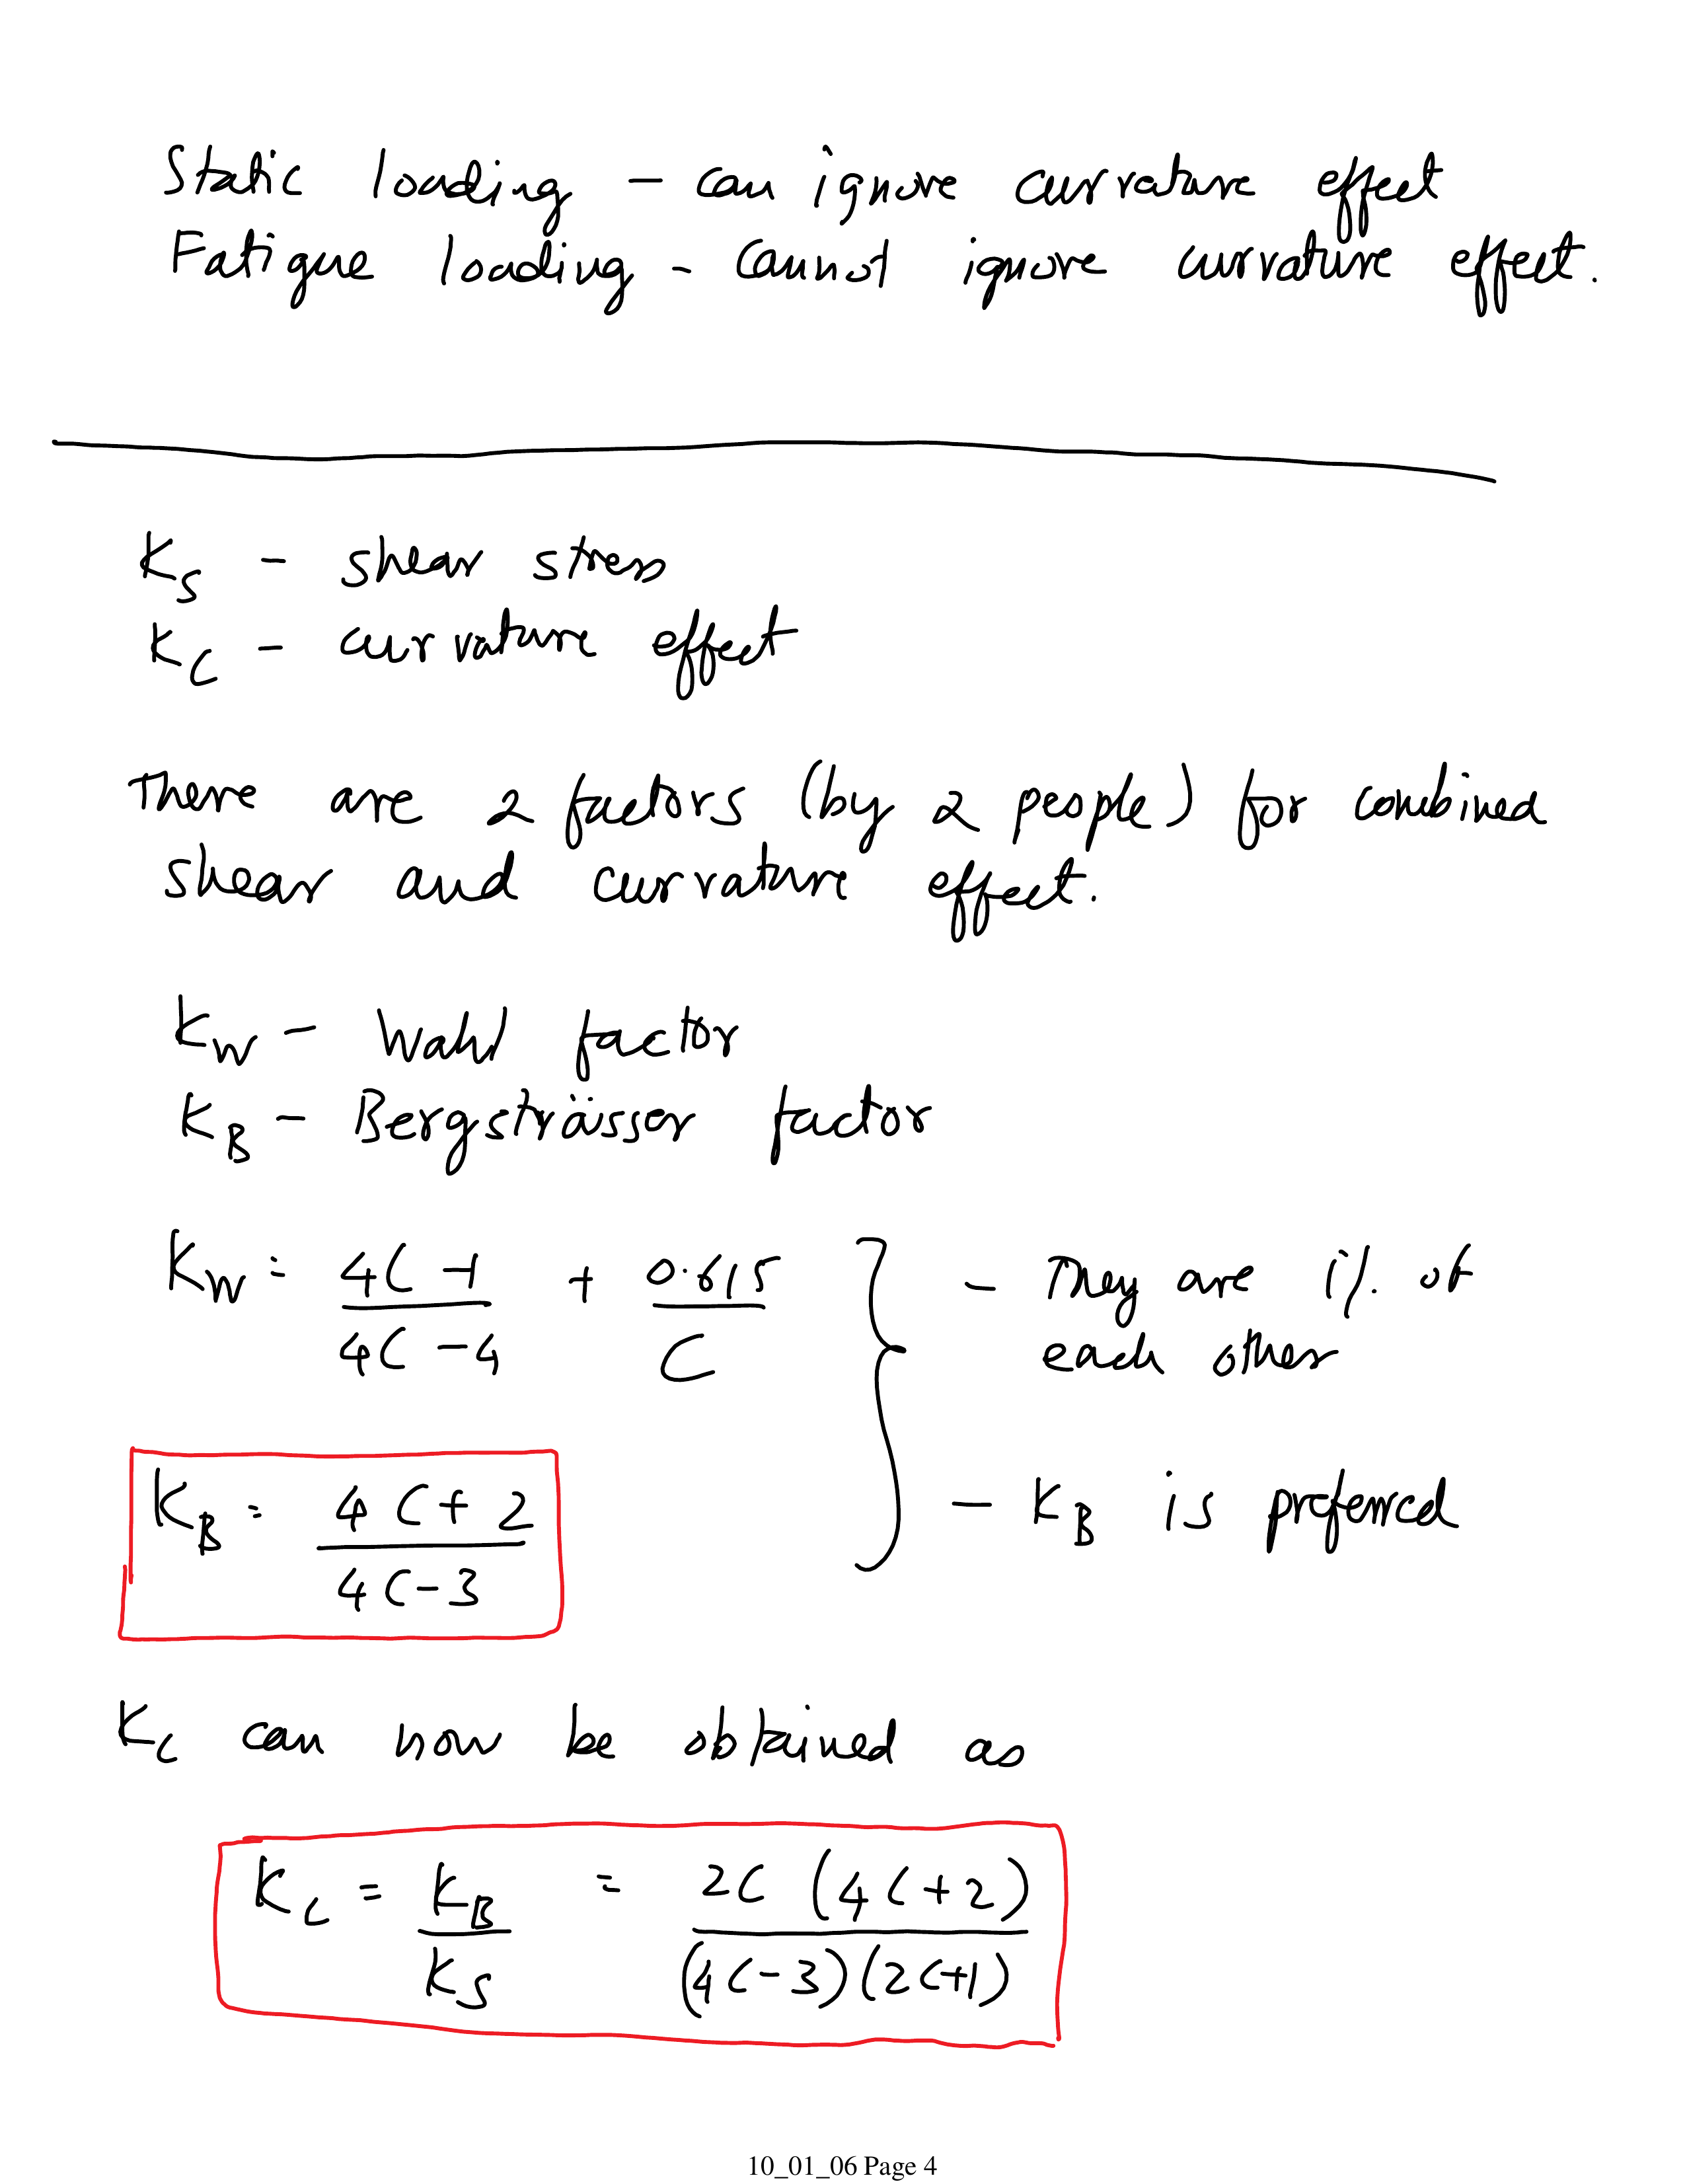 Static loading - can ignore curvature effect
Fatigue loading - cannot ignore curvature effect.
K_S - shear stress
K_C - curvature effect
There are 2 factors (by 2 people) for combined
shear and curvature effect.
K_W - Wahl factor
K_B - Bergsträsser factor
K_W = (4C-1)/(4C-4) + 0.615/C - They are 1% of
each other
K_B = (4C+2)/(4C-3) - K_B is preferred
K_C can now be obtained as
K_C = K_B/K_S = 2C(4C+2)/((4C-3)(2C+1))
10_01_06 Page 4